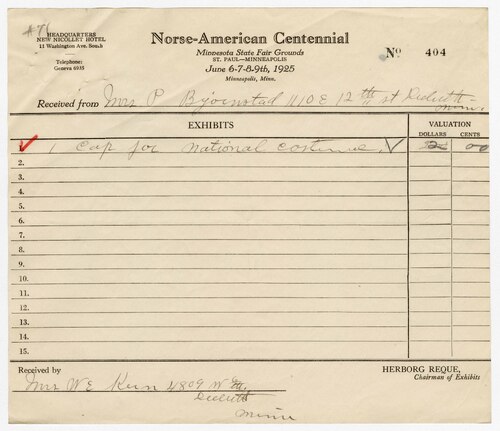 #76
HEADQUARTERS
NEW NICOLLET HOTEL
11 Washington Ave. South
Telephone:
Geneva 6935
Norse-American Centennial
Minnesota State Fair Grounds
ST. PAUL—MINNEAPOLIS
June 6-7-8-9th, 1925
Minneapolis, Minn.
No 404
Received from Mrs P Bjornstad 1110 E 12th st Duluth
Minn.
EXHIBITS
VALUATION
DOLLARS CENTS
1. 1 Cap for National costume. 2 00
2.
3.
4.
5.
6.
7.
8.
9.
10.
11.
12.
13.
14.
15.
Received by
HERBORG REQUE,
Chairman of Exhibits
Mrs W E Kern 4809 W
Duluth
Minn